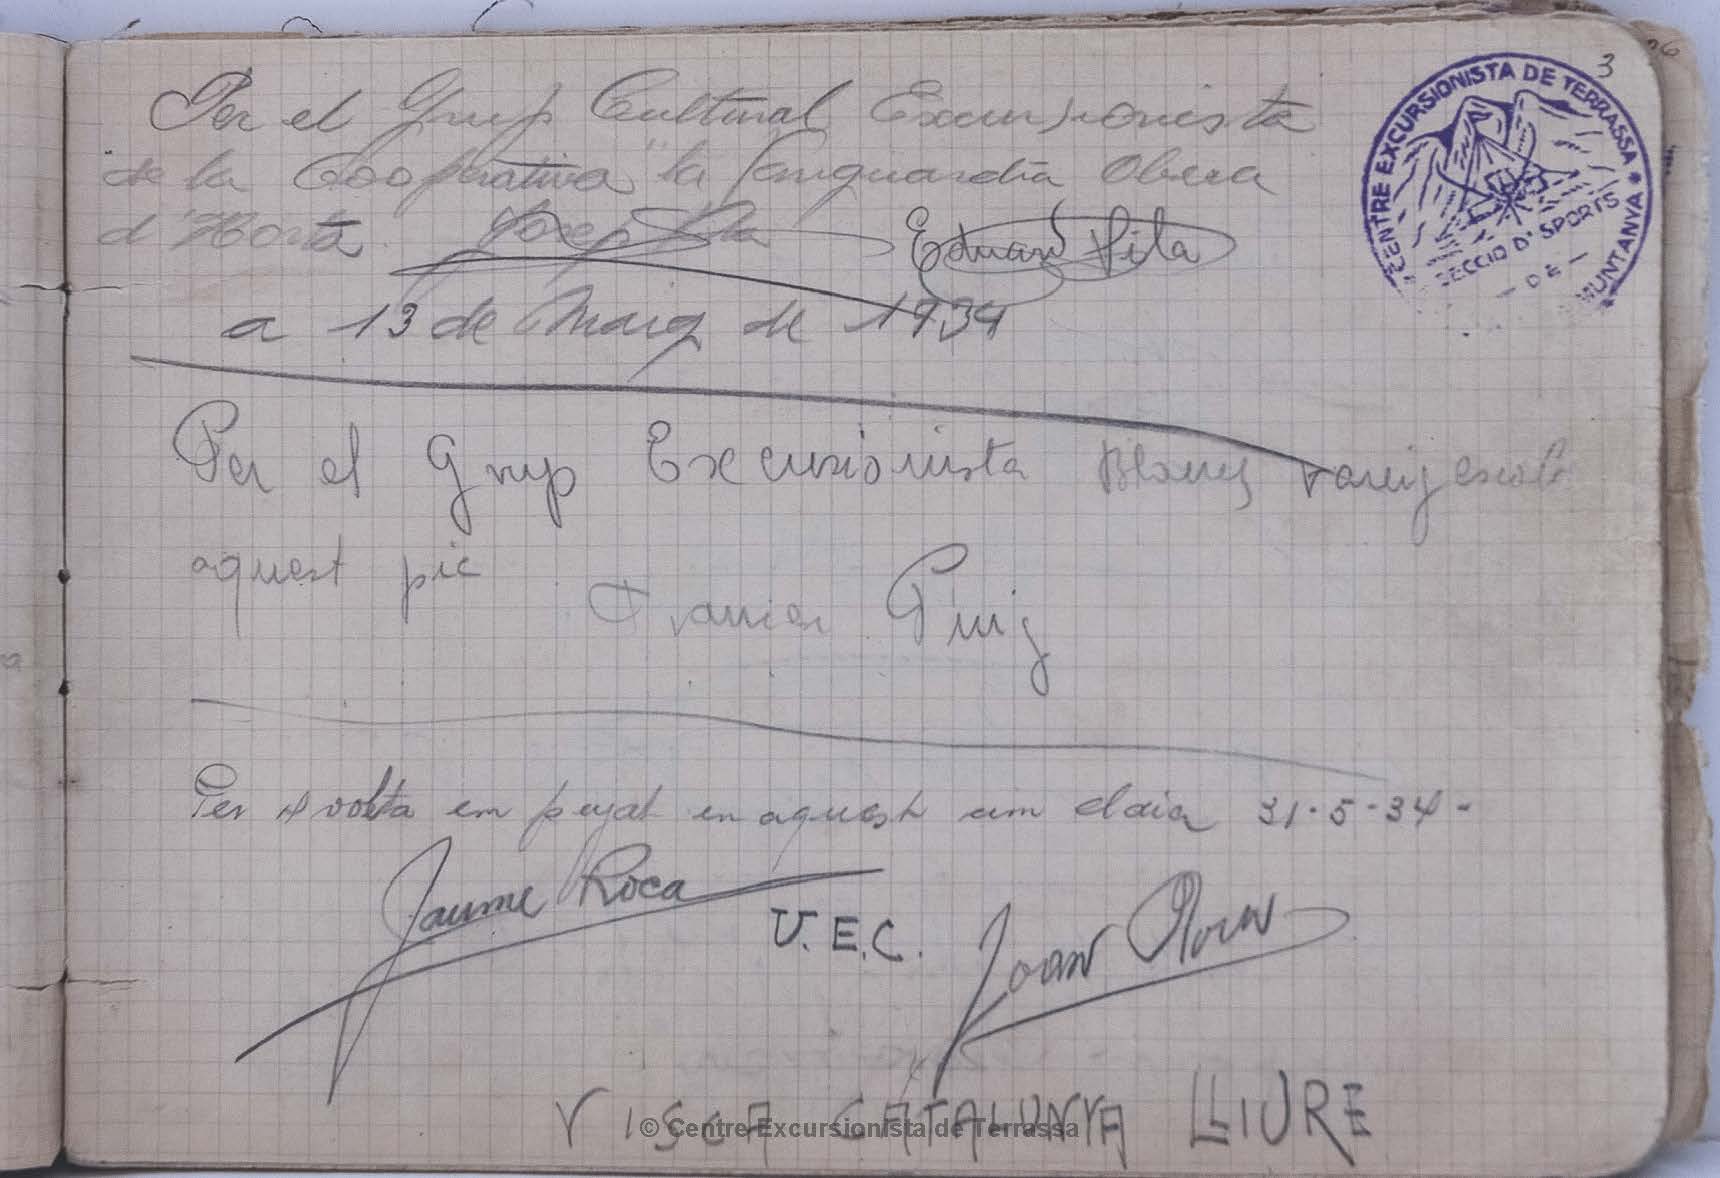 3
CENTRE EXCURSIONISTA DE TERRASSA * SECCIO D'ESPORTS DE MUNTANYA *
Per el Grup Cultural Excursionista
de la Cooperativa "la Vanguardia Obrera
d'Horta. Josep Vila Eduard Vila
a 13 de Maig de 1934
Per el Grup Excursionista Blanc
aquest pic
Puig
Per volta em pujat en aquest cim el dia 31-5-34-
Jaume Roca
U.E.C.
Joan
VISCA CATALUNYA LLIURE
© Centre Excursionista de Terrassa